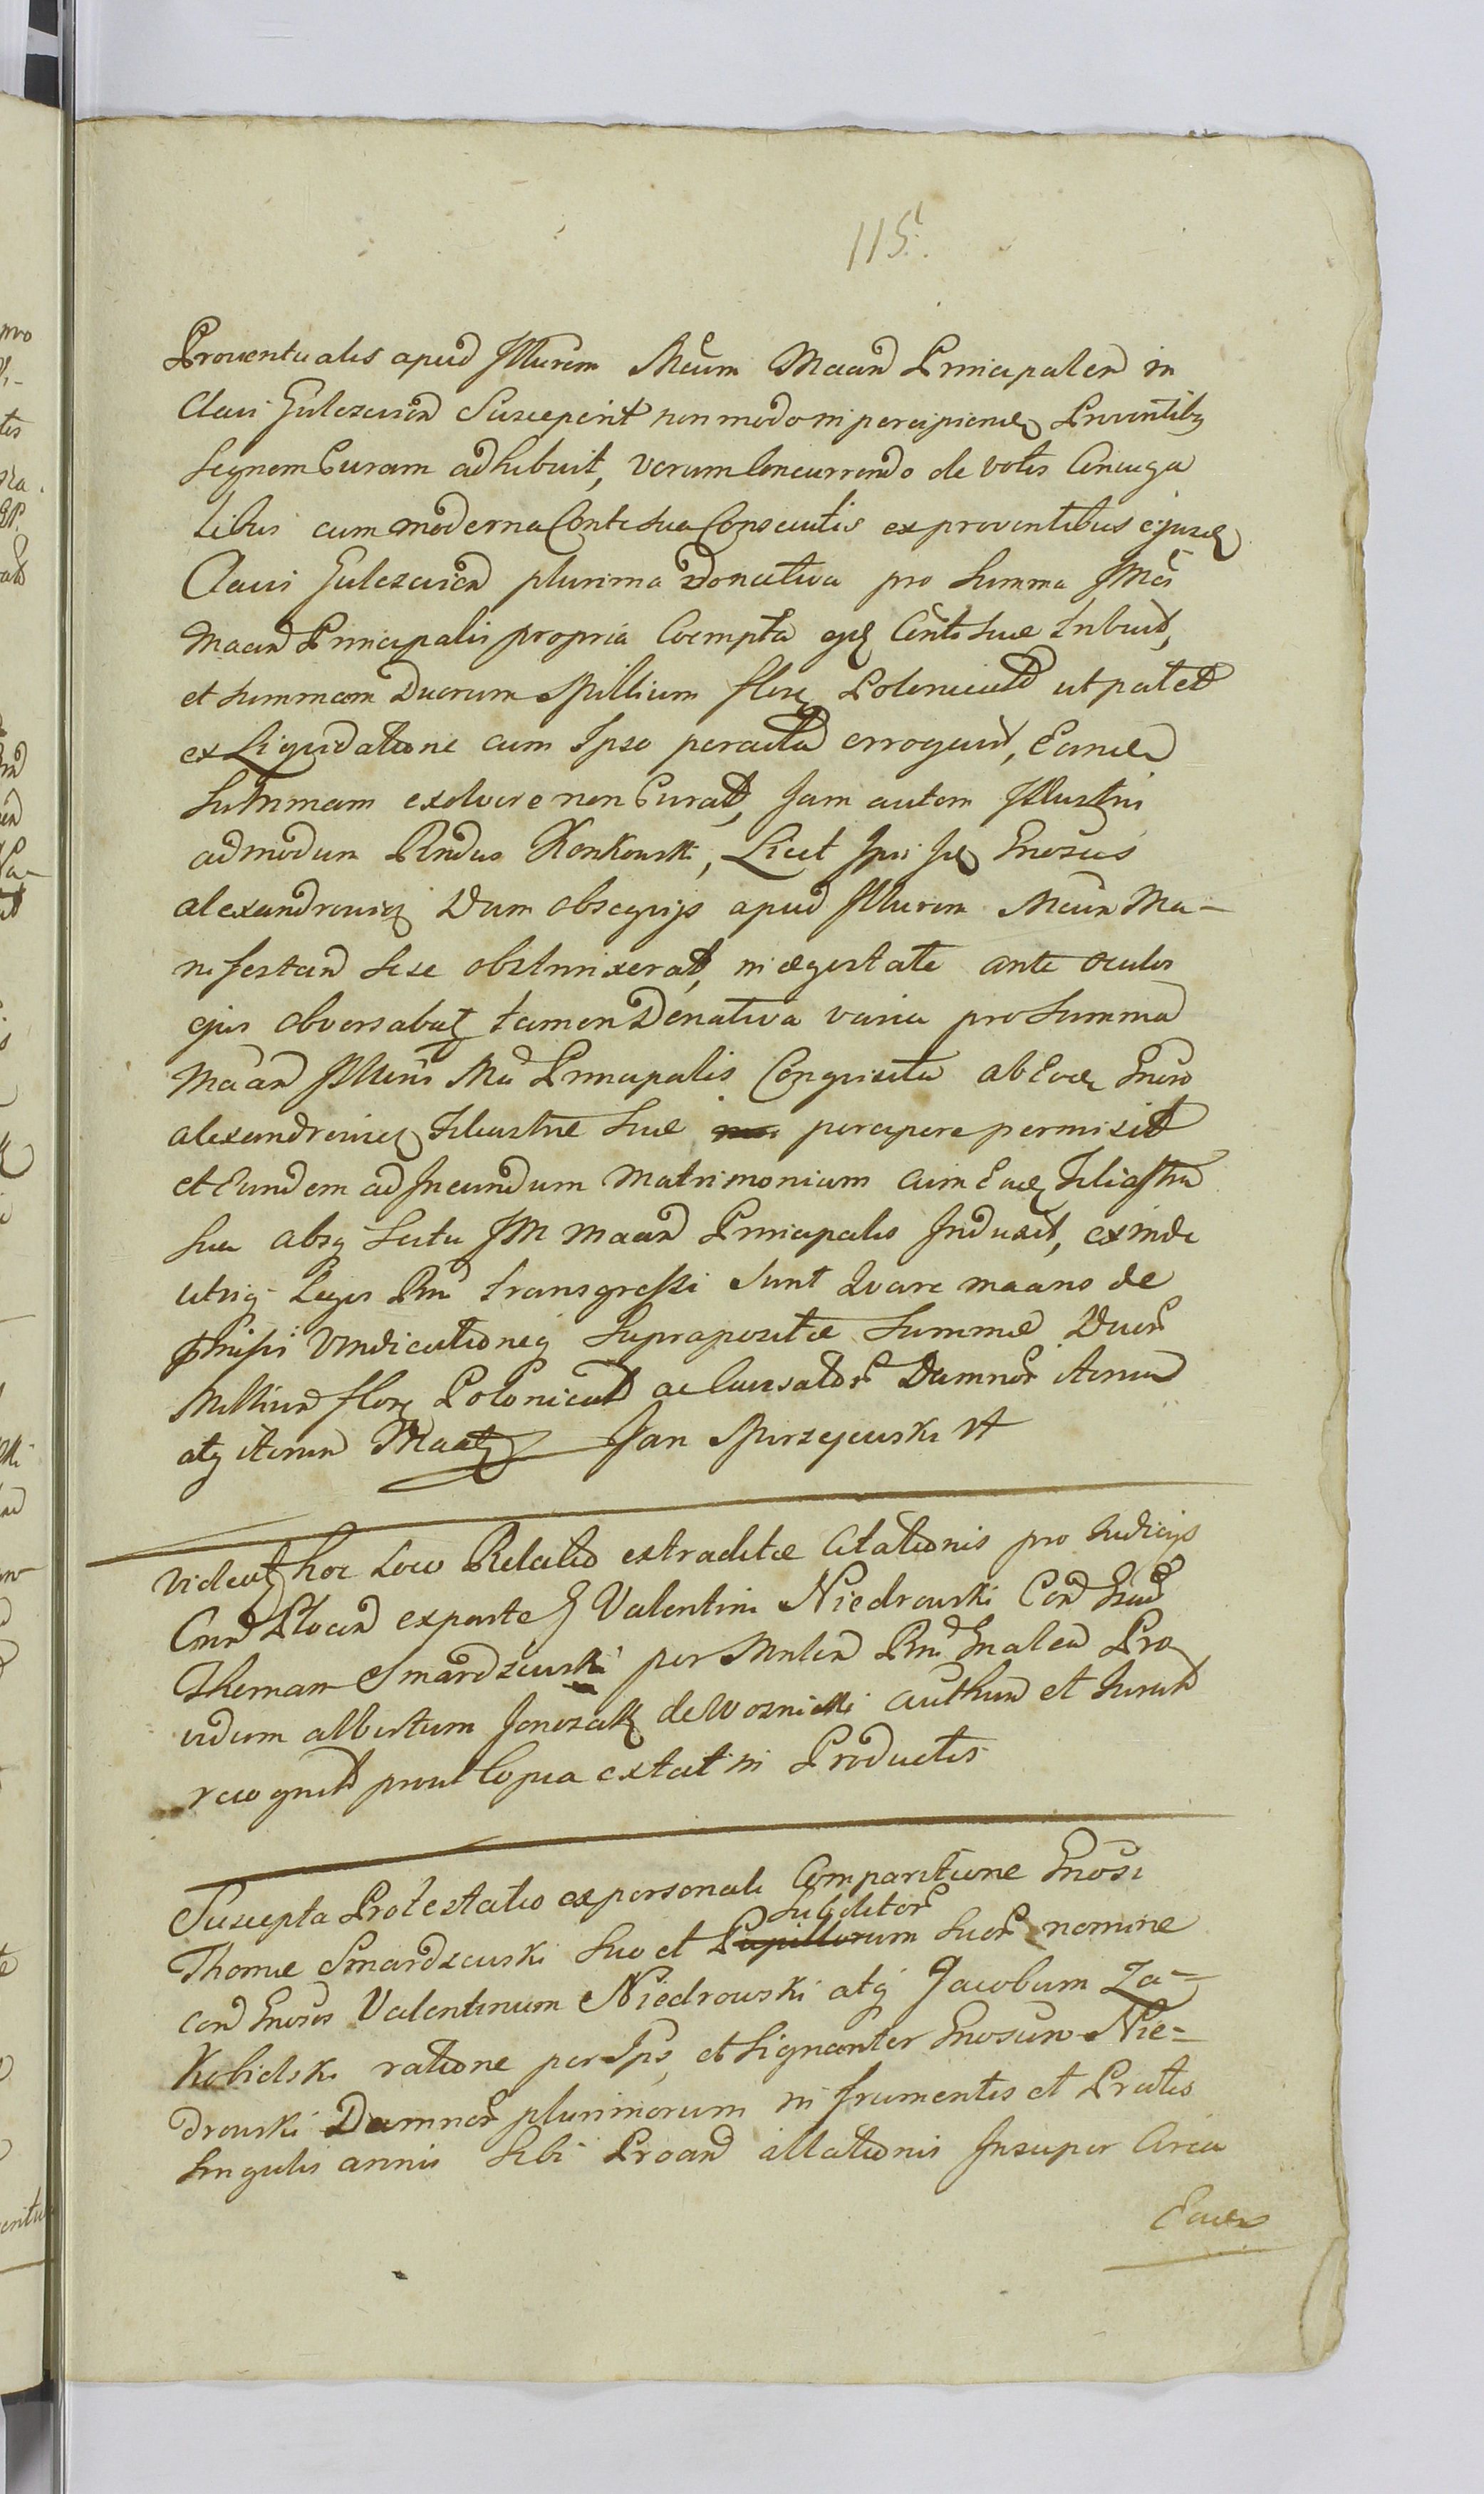 115.
Proventualis apud Illurem Mcum Maand Principalem in
Clavi Gulczevien Susceperit non modo in percipiend Proventibq
segnem Curam adhibuit, verum Concurrendo de votis Coniuga
libus cum moderna Conte sua Consecutis ex proventibus ejusd
Clavi Gulczevien plurima Donativa pro Summa JMci
Maand Principalis propria Coempta ejd Conti suae tribuit,
et summam Duorum Millium flor Polonical ut patet
ex Liquidatione cum Ipso peracta erroguit, Eamd
Summam exolvere non Curat, Jam autem Illustris
admodum Rndus Konkowski, Licet Ipsi Jd Gnosus
alexandrowicz Dum obsequijs apud Illurem Mcum Ma-
nifestand sese obstrinxerat, in egestate ante oculos
ejus obversabat tamen Donativa varia pro Summa
Maand Illuris Mci Principalis Conquisita ab Eod Gnoso
alexandrowicz Filiastrae suae percipere permisit
et Eundem ad Ineundum Matrimonium cum Ead Filiastra
sua absq Scitu JM Maand Principalis Induxit, exinde
utriq Legis Rni transgressi sunt Quare maans de
pmissi Vindicationeq Suprapositae Summae Duor
Millium flor Polonical ac Causator Damnor iterum
atq iterum Maat Jan Mirzejewski VA
Videat hoc Loco Relatio extraditae Citationis pro Judicijs
Cmd Plocen ex parte G Valentini Niedrowski Con Gnd
Thomam Smardzewski per Mnlem Rni Gnalem Pro
vidum albertum Jonczak de Woznicki authen et Jurat
recognit prout Copia extat in Productis
Suscepta Protestatio ex personali Comparitione Gnosi
Subditor
Thomae Smardzewski suo et Pupillorum suor nomine
con Gnosos Valentinum Niedrowski atq Jacobum Za-
kobielski ratione per Ips, et Signanter Gnosum Nie-
drowski Damnor plurimorum in frumentis et Pratis
singulis annis sibi Proand illationis Insuper Circa
Eand